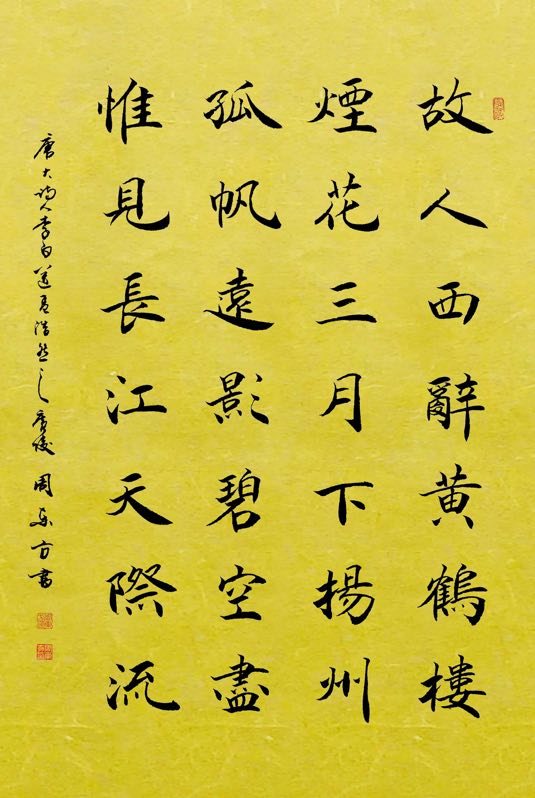 故人西辭黄鶴樓
煙花三月下揚州
孤帆遠影碧空盡
惟見長江天際流
唐大詩人李白送孟浩然之廣陵 周東方書